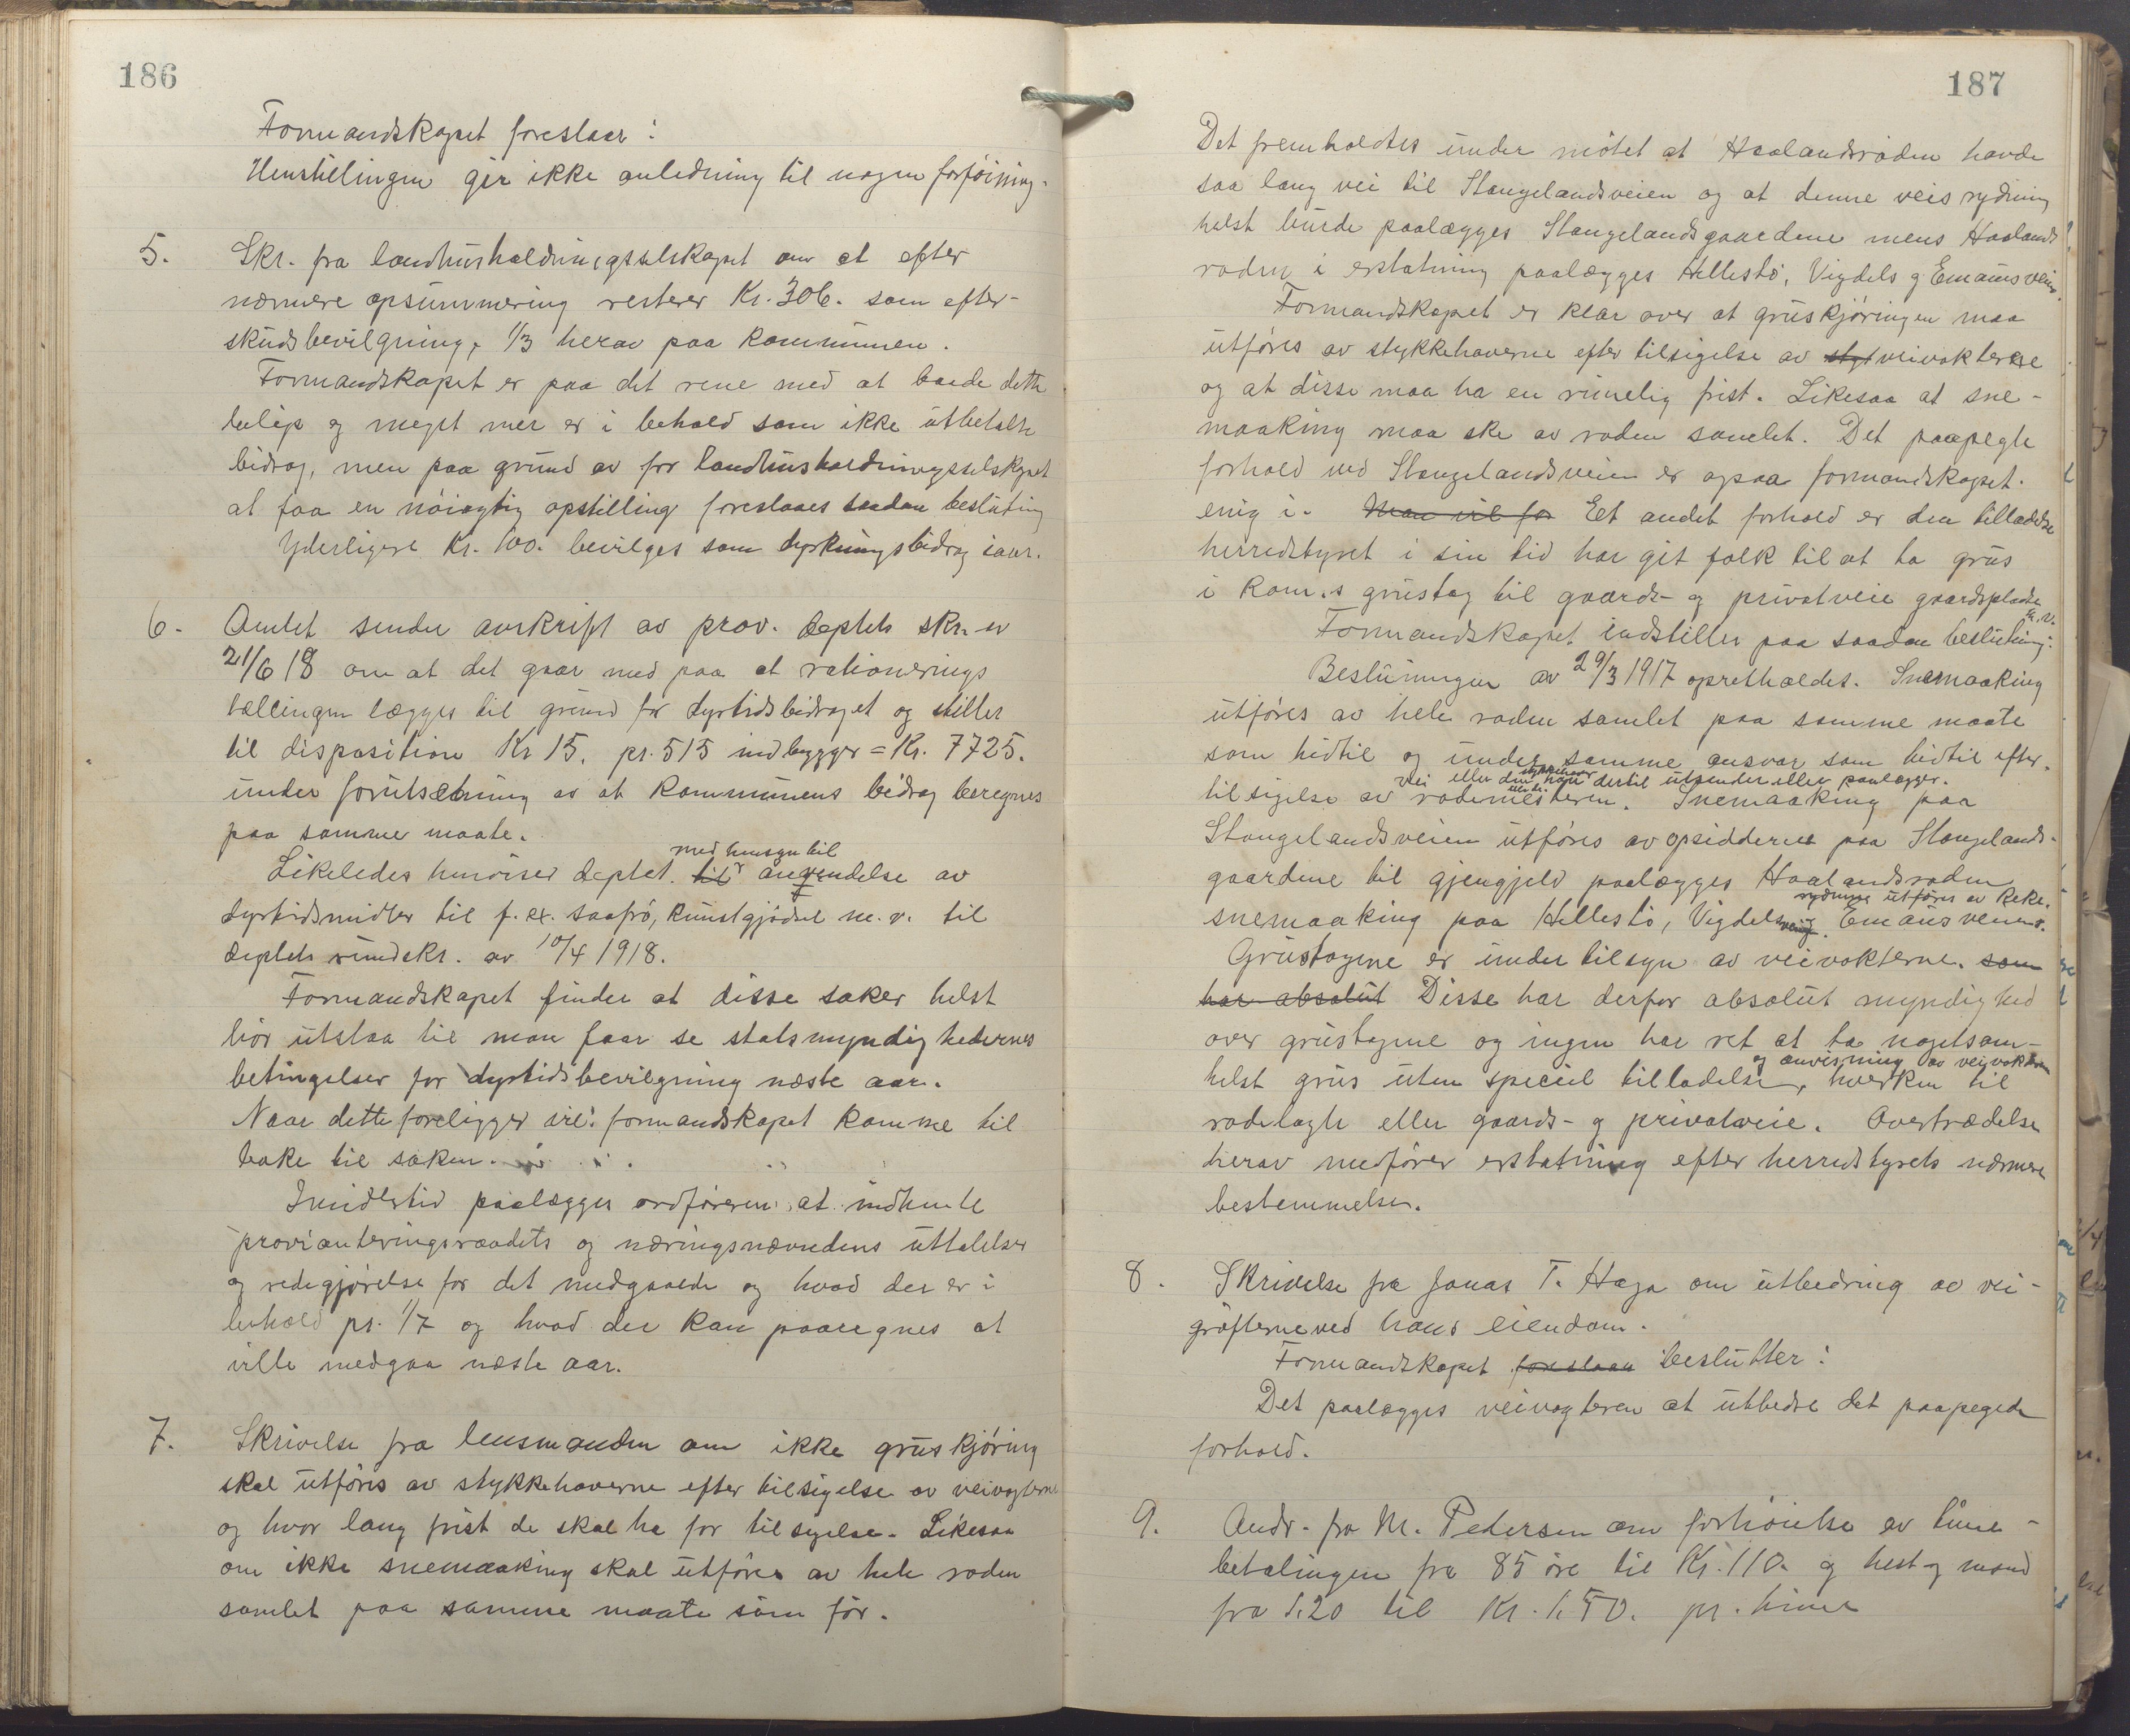 186
Formandskapet foreslaar:
Henstilingen gir ikke anledning til nogen forföining.
5. Skr. fra landhusholdningsselskapet om at efter
nærmere opsummering resterer Kr. 306. som efter-
skudsbevilgning, 1/3 herav paa kommunen.
Formandskapet er paa det rene med at baade dette
belöp og meget mer er i behold som ikke utbetalte
bidrag, men paa grund av for landhusholdningsselskapet
at faa en nöiagtig opstilling foreslaaes saadan beslutning
Yderligere Kr. 100. bevilges som dyrkningsbidrag iaar.
6. Amtet sender avskrift av prov. deptets skr. av
21/6 18 om at det gaar med paa at rationerings
tællingen lægges til grund for dyrtidsbidraget og stiller
til disposition Kr 15. pr. 515 indbygger = Kr. 7725.
under forutsætning av at kommunens bidrag beregnes
paa samme maate.
med hensyn til
Likeledes henviser deptet. til anvendelse av
dyrtidsmidler til f. ex. saafrö, kunstgjödsel m. v. til
deptets rundskr. av 10/4 1918.
Formandskapet finder at disse saker helst
bör utstaa til man faar se statsmyndighedernes
betingelser for dyrtidsbevilgning næste aar.
Naar dette foreligger vil formandskapet komme til
bake til saken.
Imidlertid paalægges ordföreren at indhente
provianteringsraadets og næringsnævndens uttalelser
og redegjörelse for det medgaaede og hvad der er i
behold pr. 1/7 og hvad der kan paaregnes at
ville medgaa næste aar.
7. Skrivelse fra lensmanden om ikke gruskjöring
skal utföres av stykkehaverne efter tilsigelse av veivogterne
og hvor lang frist de skal ha for tilsigelse. Likesaa
om ikke snemaaking skal utföres av hele roden
samlet paa samme maate som för.
187
Det fremholdtes under mötet at Haalandsroden havde
saa lang vei til Stangelandsveien og at denne veis rydning
helst burde paalægges Stangelandsgaardene mens Haalands
roden i erstatning paalægges Hellestö, Vigdels og Emausveien.
Formandskapet er klar over at gruskjöringen maa
utföres av stykkehaverne efter tilsigelse av styk veivokterne
og at disse maa ha en rimelig frist. Likesaa at sne-
maaking maa ske av roden samlet. Det paapegte
forhold ved Stangelandsveien er ogsaa formandskapet.
enig i. Man vil for Et andet forhold er den tilladelse
herredstyret i sin tid har git folk til at ta grus
i kom.s grustag til gaards- og privatveie gaardspladse
m. v.
Formandskapet indstiller paa saadan beslutning:
Beslutningen av 29/3 1917 opretholdes. Snemaaking
utföres av hele roden samlet paa samme maate
som hidtil og under samme ansvar som hidtil efter
vei eller den han dertil utsender eller paalægger.
tilsigelse av rodemesteren. Snemaaking paa
Stangelandsveien utföres av opsidderne paa Stangelands-
gaardene til gjengjeld paalægges Haalandsroden
rydning utföres av Reke.
snemaaking paa Hellestö, Vigdelsveien. Emausveiens.
Grustagene er under tilsyn av veivokterne. som
har absolut Disse har derfor absolut myndighed
over grustagene og ingen har ret at ta nogetsom-
og anvisning av veivokteren
helst grus uten speciel tilladelse, hverken til
rodelagte eller gaards- og privatveie. Overtrædelse
herav medförer erstatning efter herredstyrets nærmere
bestemmelser.
8. Skrivelse fra Jonas T. Haga om utbedring av vei-
gröfterne ved hans eiendom.
Formandskapet foreslaar beslutter:
Det paalægges veivogteren at utbedre det paapegede
forhold.
9. Andr. fra M. Pedersen om forhöielse av time-
betalingen fra 85 öre til Kr. 110. og hest og mand
fra 1.20 til Kr. 1.50. pr. time